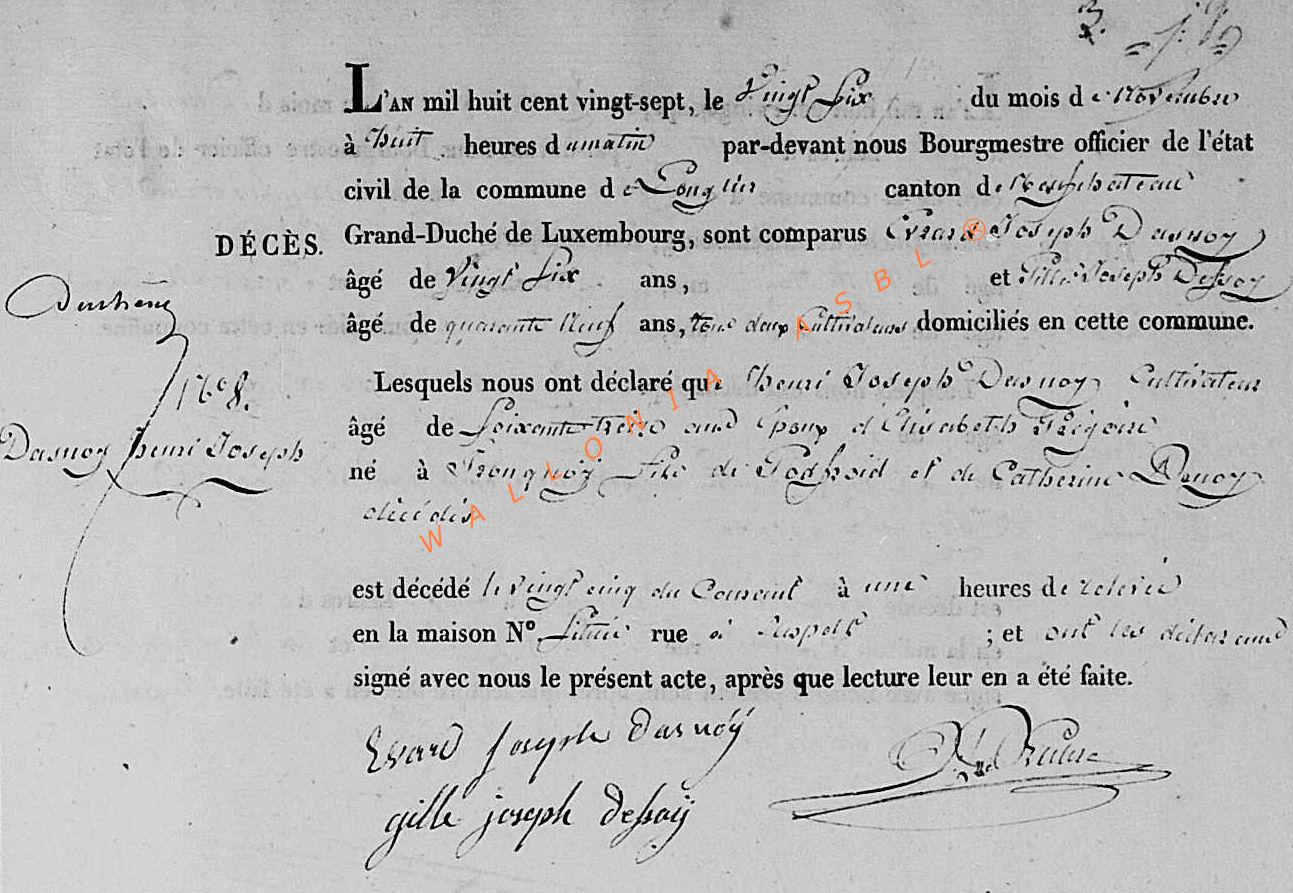 L'AN mil huit cent vingt-sept, le Vingt Six du mois de Novembre
à huit heures du matin par-devant nous Bourgmestre officier de l'état
civil de la commune de Longlier canton de Neufchateau
DÉCÈS.
Grand-Duché de Luxembourg, sont comparus Evrard Joseph Dasnoy
âgé de Vingt Six ans, et Gille Joseph Dessoy
âgé de quarante Neuf ans, tous deux Cultivateurs domiciliés en cette commune.
Lesquels nous ont déclaré que henri Joseph Dasnoy Cultivateur
âgé de Soixante treize ans Epoux d'Elisabeth Grégoire
né à Tronquoy fils de et de Catherine
décédés
est décédé le vingt cinq du Courant à une heures de relevée
en la maison N° Située rue à Respelt ; et ont les déclarans
signé avec nous le présent acte, après que lecture leur en a été faite.
Dasnoy henri Joseph
Evrard Joseph Dasnoÿ
gille joseph dessoÿ
WALLONIA ASBL ®